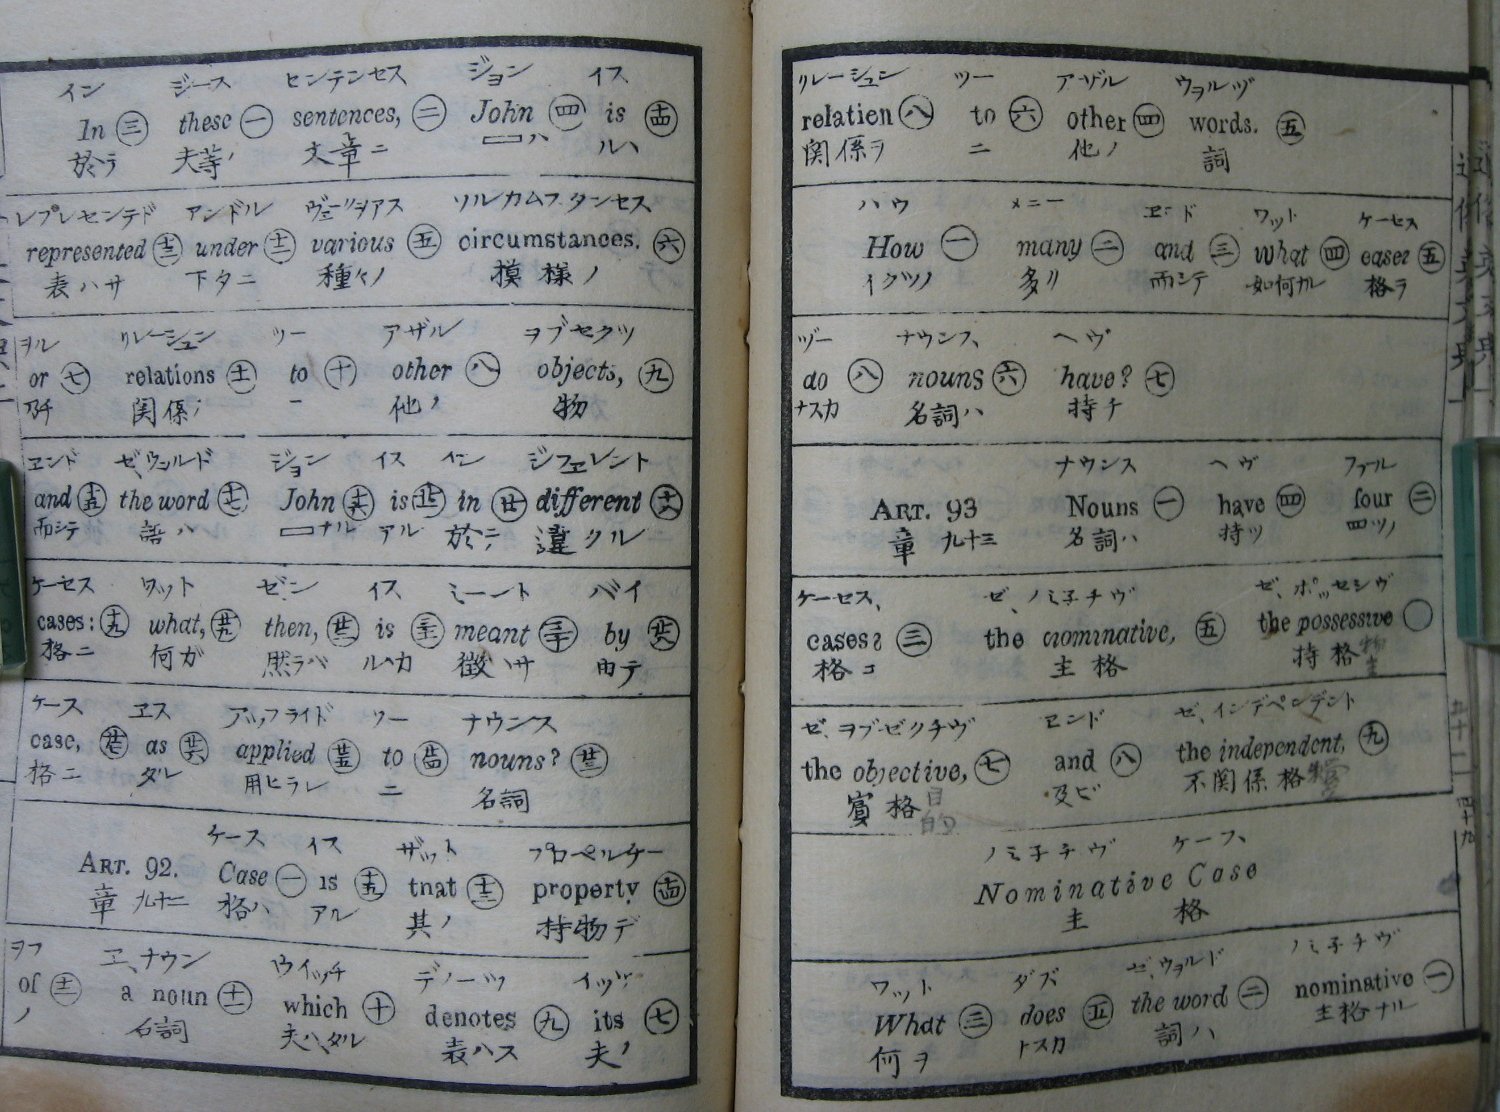 イン ジース センテンセス ジョン イス
In 三 these 一 sentences, 二 John 四 is 十四
於ラ 夫等ノ 文章ニ ハ ルハ
レプレセンテド アンドル ヴェーリヲアス ソルカムスタンセス
represented 十三 under 十二 various 五 circumstances. 六
表ハサ 下タニ 種々ノ 模様ノ
ヲル リレーシュン ツー アザル ヲブセクツ
or 七 relations 十一 to 十 other 八 objects, 九
関係ノ ニ 他ノ 物
ヱンド ゼ、ウヲルド ジョン イス イン ジフエレント
and 十五 the word 十七 John 十六 is in 廿 different 十八
而シテ 語ハ ナル アル 於テ 違クル
ケーセス ワット ゼン イス ミーント バイ
cases: 十九 what, 廿九 then, is meant 三十 by 廿六
格ニ 何ガ 然ラバ ルハカ 徴ハサ 由テ
ケース ヱス アップライド ツー ナウンス
case, as applied 廿五 to 廿四 nouns? 廿三
格ニ タレ 用ヒラレ ニ 名詞
ケース イス ザット プロペルチー
ART. 92. Case 一 is 十五 tnat 十三 property 十四
章 九十二 格ハ アル 其ノ 持物デ
ヲフ ヱ、ナウン ウイッチ デノーツ イッツ
of 十二 a noun 十一 which 十 denotes 九 its 七
ノ 名詞 夫ハタル 表ハス 夫ノ
リレーシュン ツー アザル ウヲルヅ
relatien 八 to 六 other 四 words. 五
関係ヲ ニ 他ノ 詞
ハウ メニー ヱンド ワット ケーセス
How 一 many 二 and 三 what 四 cases 五
イクツノ 多リ 而シテ 如何ナル 格ヲ
ヅー ナウンス ヘヴ
do 八 nouns 六 have? 七
ナスカ 名詞ハ 持チ
ナウンス ヘヴ フアル
ART. 93 Nouns 一 have 四 four 二
章 九十三 名詞ハ 持ツ 四ツノ
ケーセス、 ゼ、ノミ子チヴ ゼ、ポッセシヴ
cases: 三 the nominative, 五 the possessive
格コ 主格 持格
ゼ、ヲブゼクチヴ ヱンド ゼ、インデペンデント
the objective, 七 and 八 the independent, 九
賓格 目的 及ビ 不関係格
ノミ子チヴ ケース
Nominative Case
主 格
ワット ダズ ゼ、ウヲルド ノミ子チヴ
What 三 does 五 the word 二 nominative 一
何ヲ トスカ 詞ハ 主格ナル
五十二
四十九